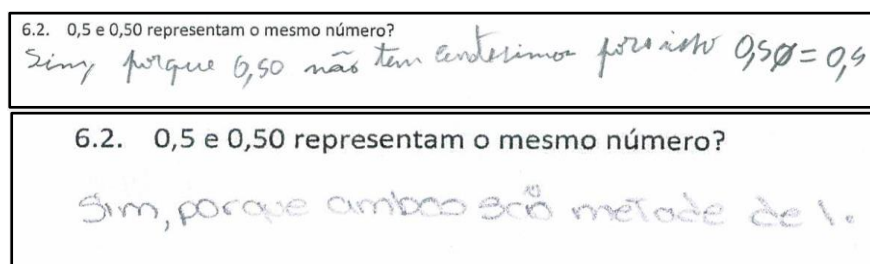 6.2. 0,5 e 0,50 representam o mesmo número?
Sim, porque 0,50 não tem centesimos por isto 0,50 = 0,5
6.2. 0,5 e 0,50 representam o mesmo número?
Sim, porque ambos são metade de 1.